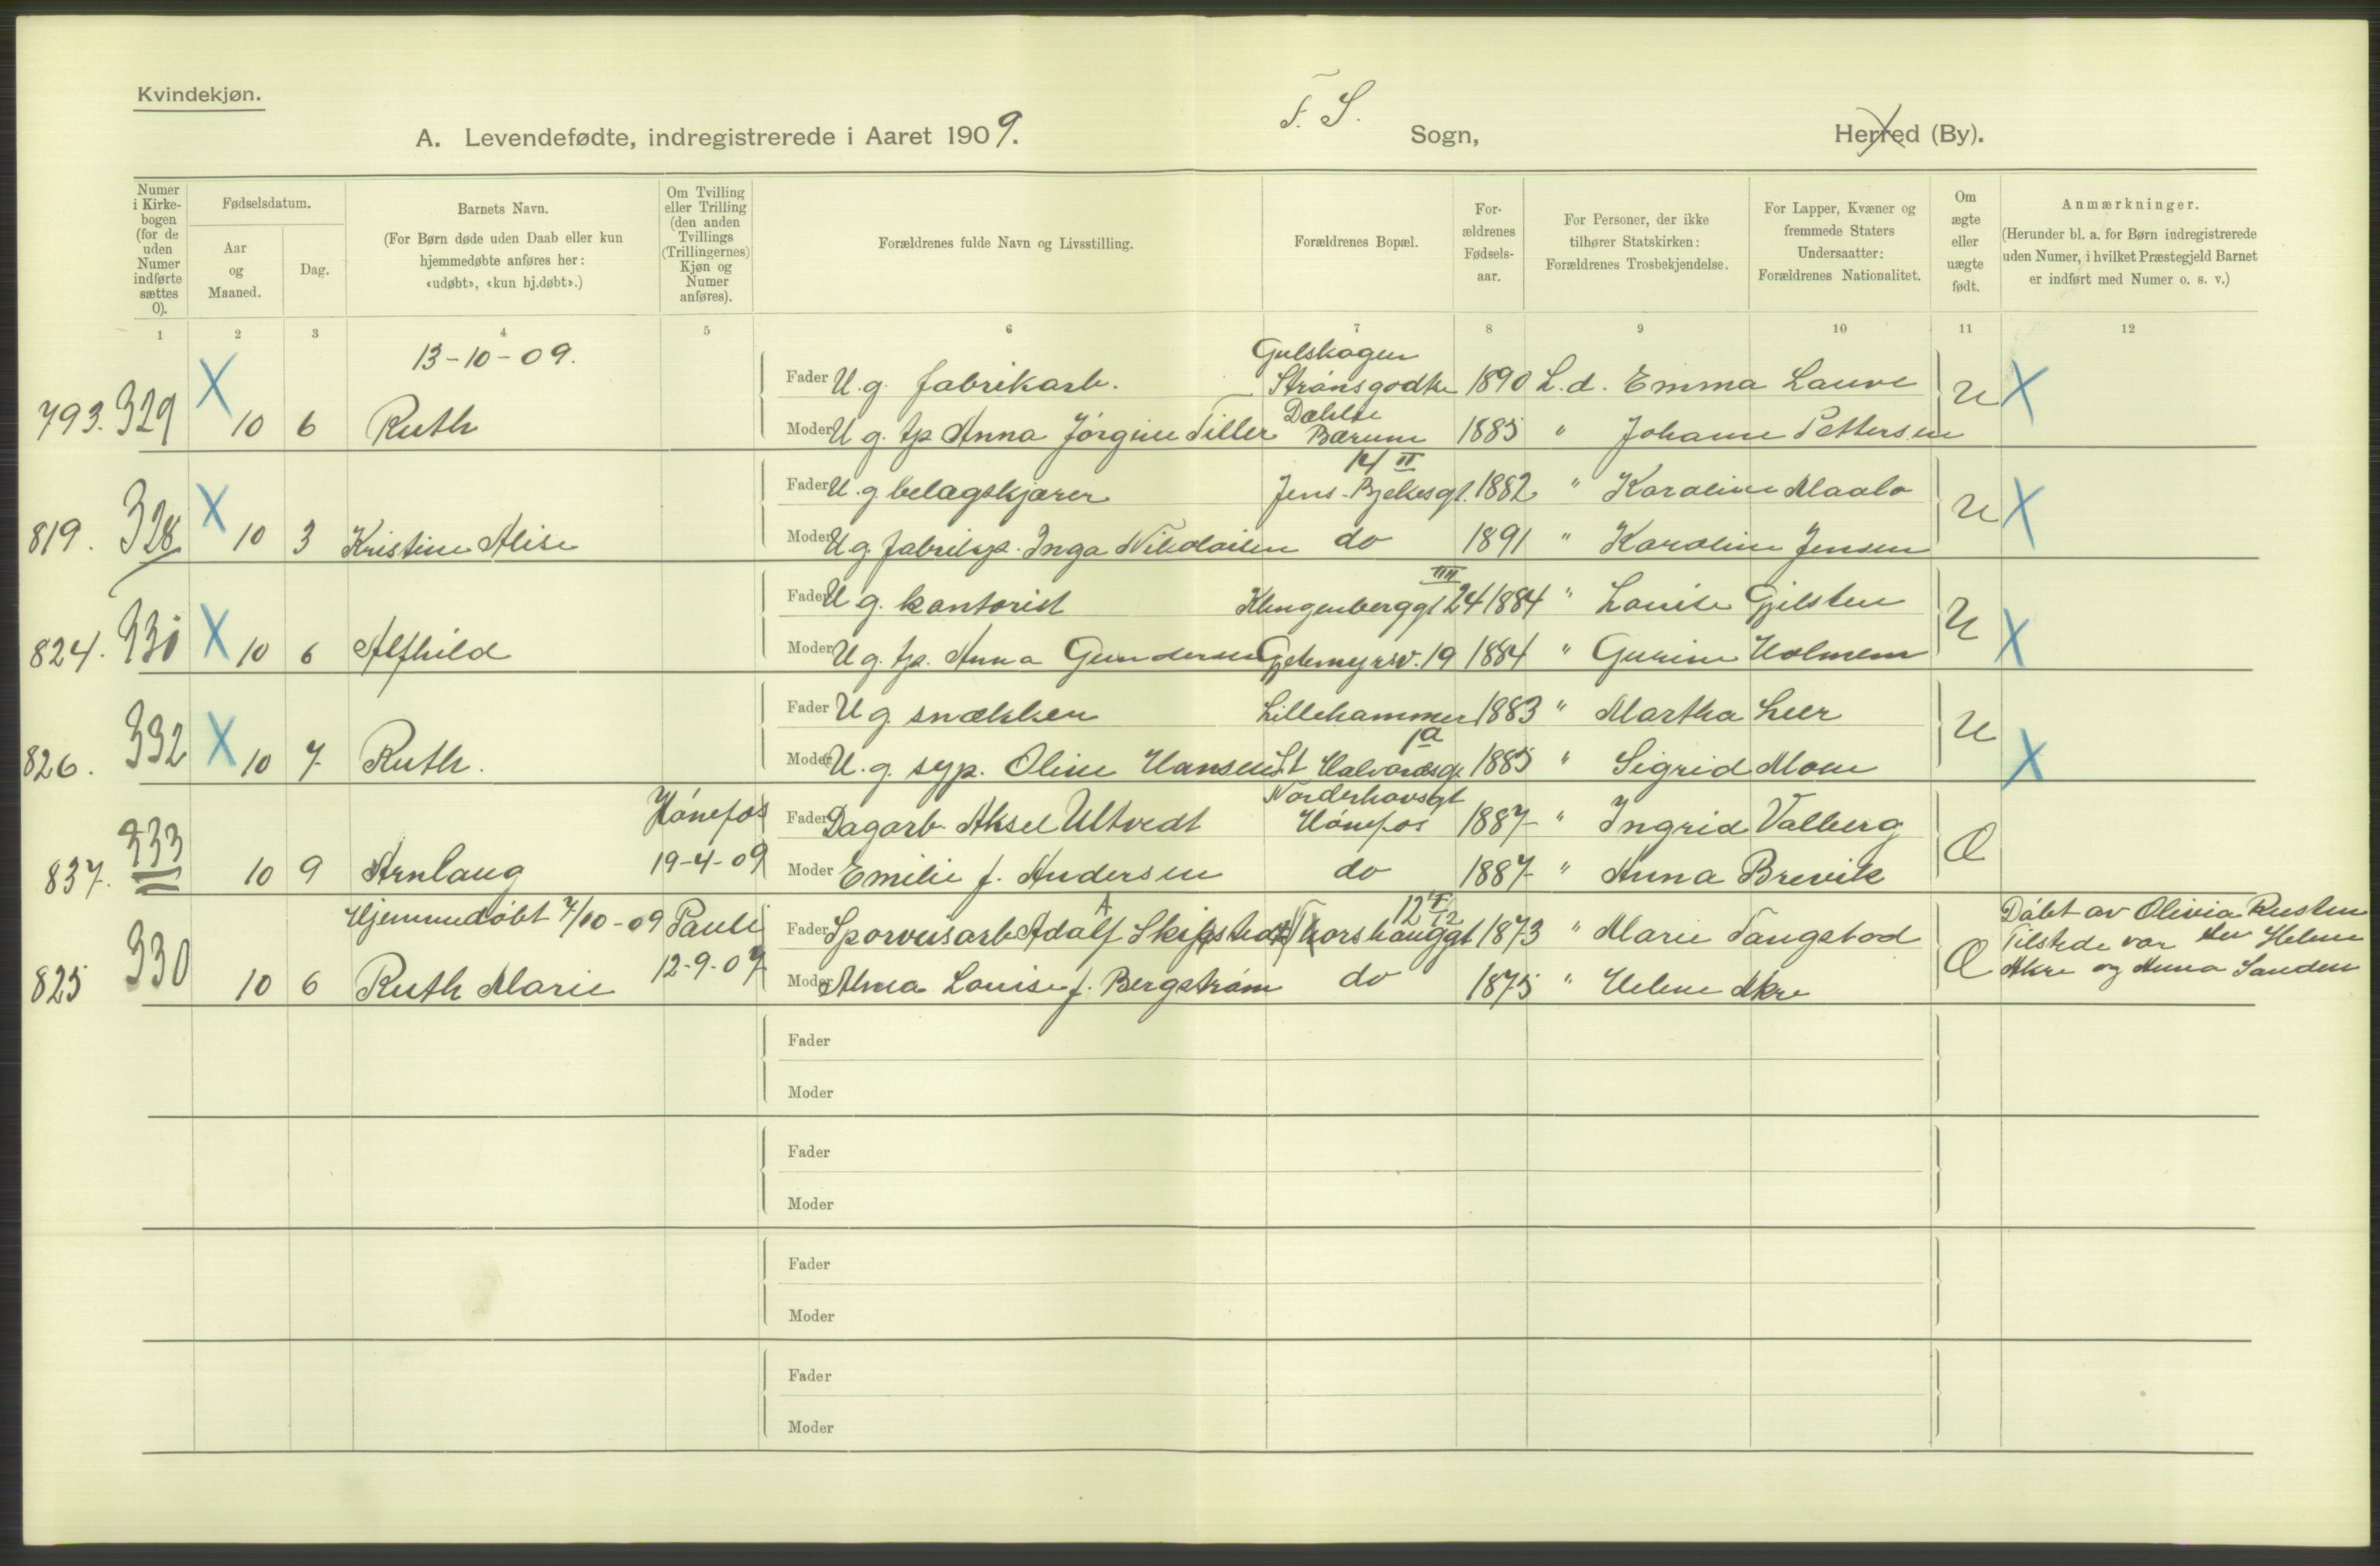 Kvindekjøn.
A. Levendefødte, indregistrerede i Aaret 1909. F. S. Sogn, Herred (By).
Numer i Kirke-bogen (for de uden Numer indførte sættes 0).
Fødselsdatum.
Aar og Maaned.
Dag.
Barnets Navn.
(For Børn døde uden Daab eller kun hjemmedøbte anføres her: «udøbt», «kun hj.døbt».)
Om Tvilling eller Trilling (den anden Tvillings (Trillingernes) Kjøn og Numer anføres).
Forældrenes fulde Navn og Livsstilling.
Forældrenes Bopæl.
For-ældrenes Fødsels-aar.
For Personer, der ikke tilhører Statskirken: Forældrenes Trosbekjendelse.
For Lapper, Kvæner og fremmede Staters Undersaatter: Forældrenes Nationalitet.
Om ægte eller uægte født.
Anmærkninger.
(Herunder bl. a. for Børn indregistrerede uden Numer, i hvilket Præstegjeld Barnet er indført med Numer o. s. v.)
1 2 3 4 5 6 7 8 9 10 11 12
13-10-09. Gulskogen
X Fader U.g. fabrikarb. Strømsgodtn 1890 L.d. Emma Lauve U X
793. 329 10 6 Ruth Moder U.g. tp Anna Jörgine Tiller Dæhlie Bærum 1885 " Johanne Pettersen
14 II
X Fader U.g. belagskjærer Jens Bjelkesgt. 1882 " Karoline Maalo U X
819. 328 10 3 Kristine Alise Moder U g. fabriksp. Inga Nikolaisen do 1891 " Karoline Jensen
IIII
Fader U g. kontorist Klingenberggt 24 1884 " Louise Gjelsten U
824. 330 X 10 6 Alfhild Moder U g. tp. Anna Gundersen Gjetemyrsv. 19 1884 " Gurine Holmem X
Fader U g. snækker Lillehammer 1883 " Martha Leer U
1a
826. 332 X 10 7 Ruth. Moder U.g. syp. Oline Hansen St Halvardsgt 1885 " Sigrid Moen X
Hönefos Norderhovsgt
Fader Dagarb. Aksel Ultvedt Hönefos 1887 " Ingrid Valberg Æ
837. 333 10 9 Arnlaug 19-4-09 Moder Emilie f. Andersen do 1887 " Anna Brevik
Hjemmedöbt 7/10-09 Pauli Fader Sporveisarb Adolf Skipstad Thorshauggt 12 1873 " Marie Tangstad Æ
Döbt av Olivia Rusten
Tilstede var Helene
Akre og Anna Sanden
825 330 10 6 Ruth Marie 12-9-07 Moder Alma Louise f. Bergström do 1875 " Helene Akre
Fader
Moder
Fader
Moder
Fader
Moder
Fader
Moder